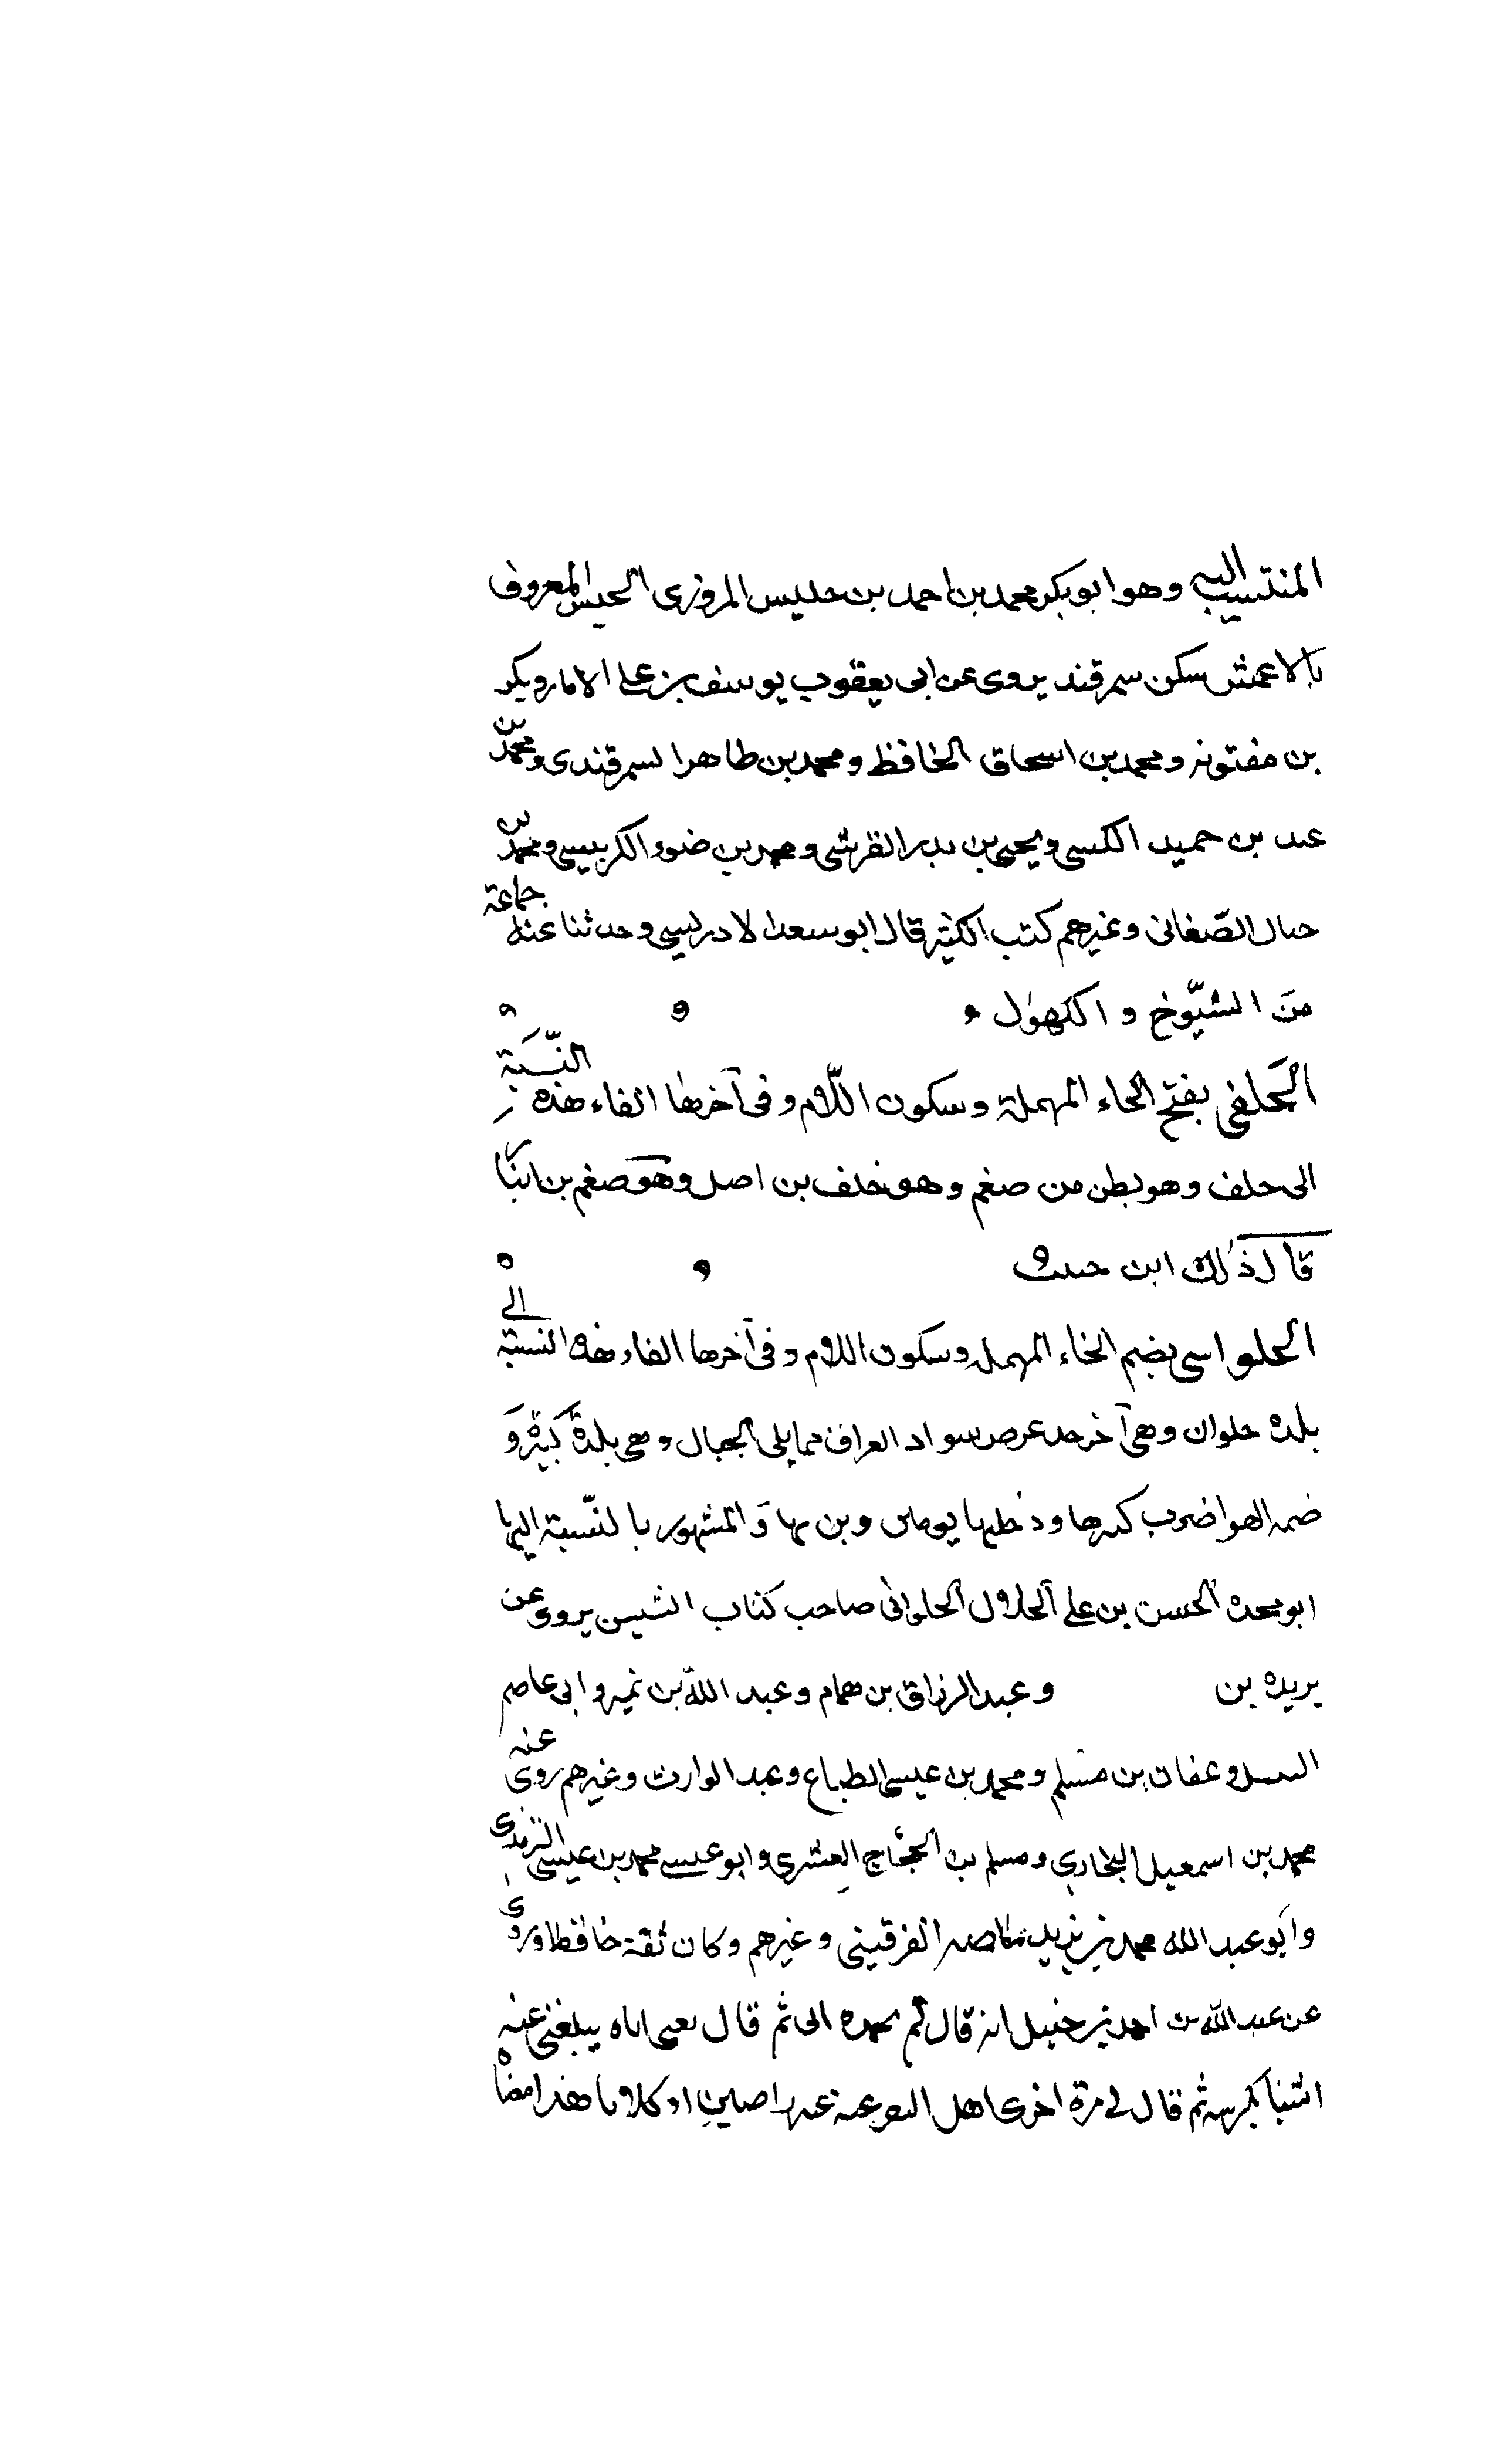 المنتسب اليه وهو ابو بكر محمد بن احمد بن حليس المروزى الحليس المعروف
بالاعمش سكن سمرقند يروى عن ابى يعقوب يوسف بن على الابار وبكر
بن مفتونه ومحمد بن اسحاق الحافظ ومحمد بن طاهر السمرقندى ومحمد بن
عبد بن حميد الكسى ويحيى بن بدر القرشى ومحمد بن ضوو الكربيسى ومحمد بن
حبال الصّغانى وغيرهم كتب الكثير قال ابو سعد الادريسى وحدثنا عنه جماعة
من الشيّوخ و الكهول
الحَلفى بفتح الحاء المهملة وسكون اللّام وفى آخرها الفاء هذه النّسَبة
الى حلف وهو بطن من صغم وهو خلف بن اصل وهو صغم بن ابنا
قال ذلك ابن حبيب
الحلواسى بضم الحاء المهمله وسكون اللام وفى آخرها الفاء هذه النسبة الى
بلده حلوان وهى آخر حد عرض سواد العراق مما يلى الجبال وهى بلدة كبيرة و
ضمه الهوا ضرب كبرها ودخلها يومين وبن بها وَالمشهور بالنّسبة اليها
ابو محمده الحسن بن على الخلال الحلوانى صاحب كتاب السنن يروى عن
يريده بن و عبد الرزاق بن همام وعبد اللّه بن نمير وابى عاصم
النبيل وعفان بن مسلم ومحمد بن عيسى الطباع وعبد الوارث وغيرهم روى عنه
محمد بن اسمعيل البخارى ومسلم بن الحجّاج القشيرى وابو عيسى محمد بن عيسى الترمذى
وابو عبد الله محمد بن يزيد القزوينى وغيرهم وكان ثقة حافظا وروى
عن عبد اللّه بن احمد بن حنبل انه قال لم يحمده ابى ثم قال يعنى اباه يبلغنى عنه
اشيا اكرهه ثم قال لى مرة اخرى اهل الثغر عنه غير راضين او كلاما هذا معناه